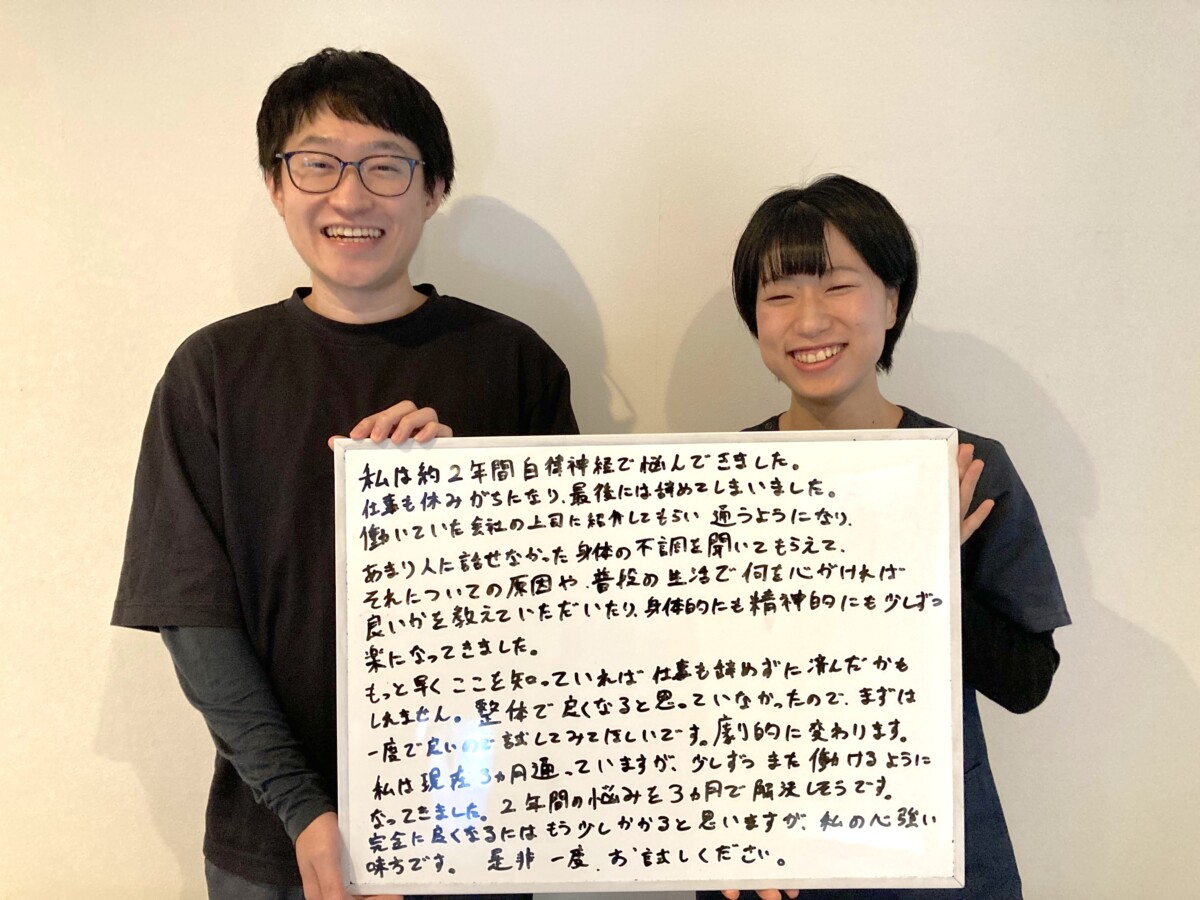 私は約2年間自律神経で悩んできました。
仕事も休みがちになり、最後には辞めてしまいました。
働いていた会社の上司に紹介してもらい 通うようになり、
あまり人に話せなかった身体の不調を聞いてもらえて、
それについての原因や、普段の生活で何を心がければ
良いかを教えていただいたり、身体的にも精神的にも少しずつ
楽になってきました。
もっと早くここを知っていれば仕事も辞めずに済んだかも
しれません。整体で良くなると思っていなかったので、まずは
一度で良いので試してみてほしいです。劇的に変わります。
私は現在3ヵ月通っていますが、少しずつまた働けるように
なってきました。2年間の悩みを3ヵ月で解決しそうです。
完全に良くなるにはもう少しかかると思いますが、私の心強い
味方です。 是非一度、お試しください。